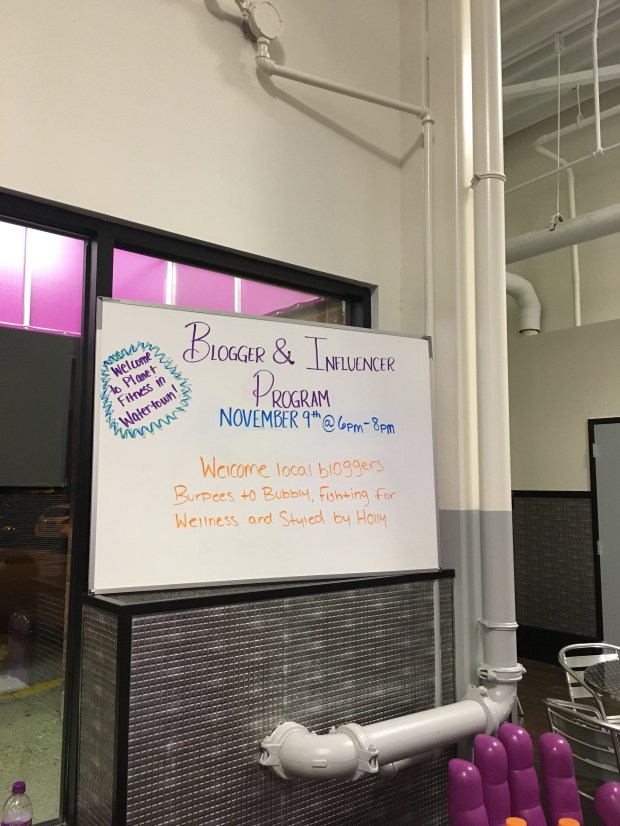 Welcome
to Planet
Fitness in
Watertown!
BLOGGER & INFLUENCER
PROGRAM
NOVEMBER 9th @ 6pm-8pm
Welcome local bloggers
Burpees to Bubbly, Fighting for
Wellness and Styled by Holly